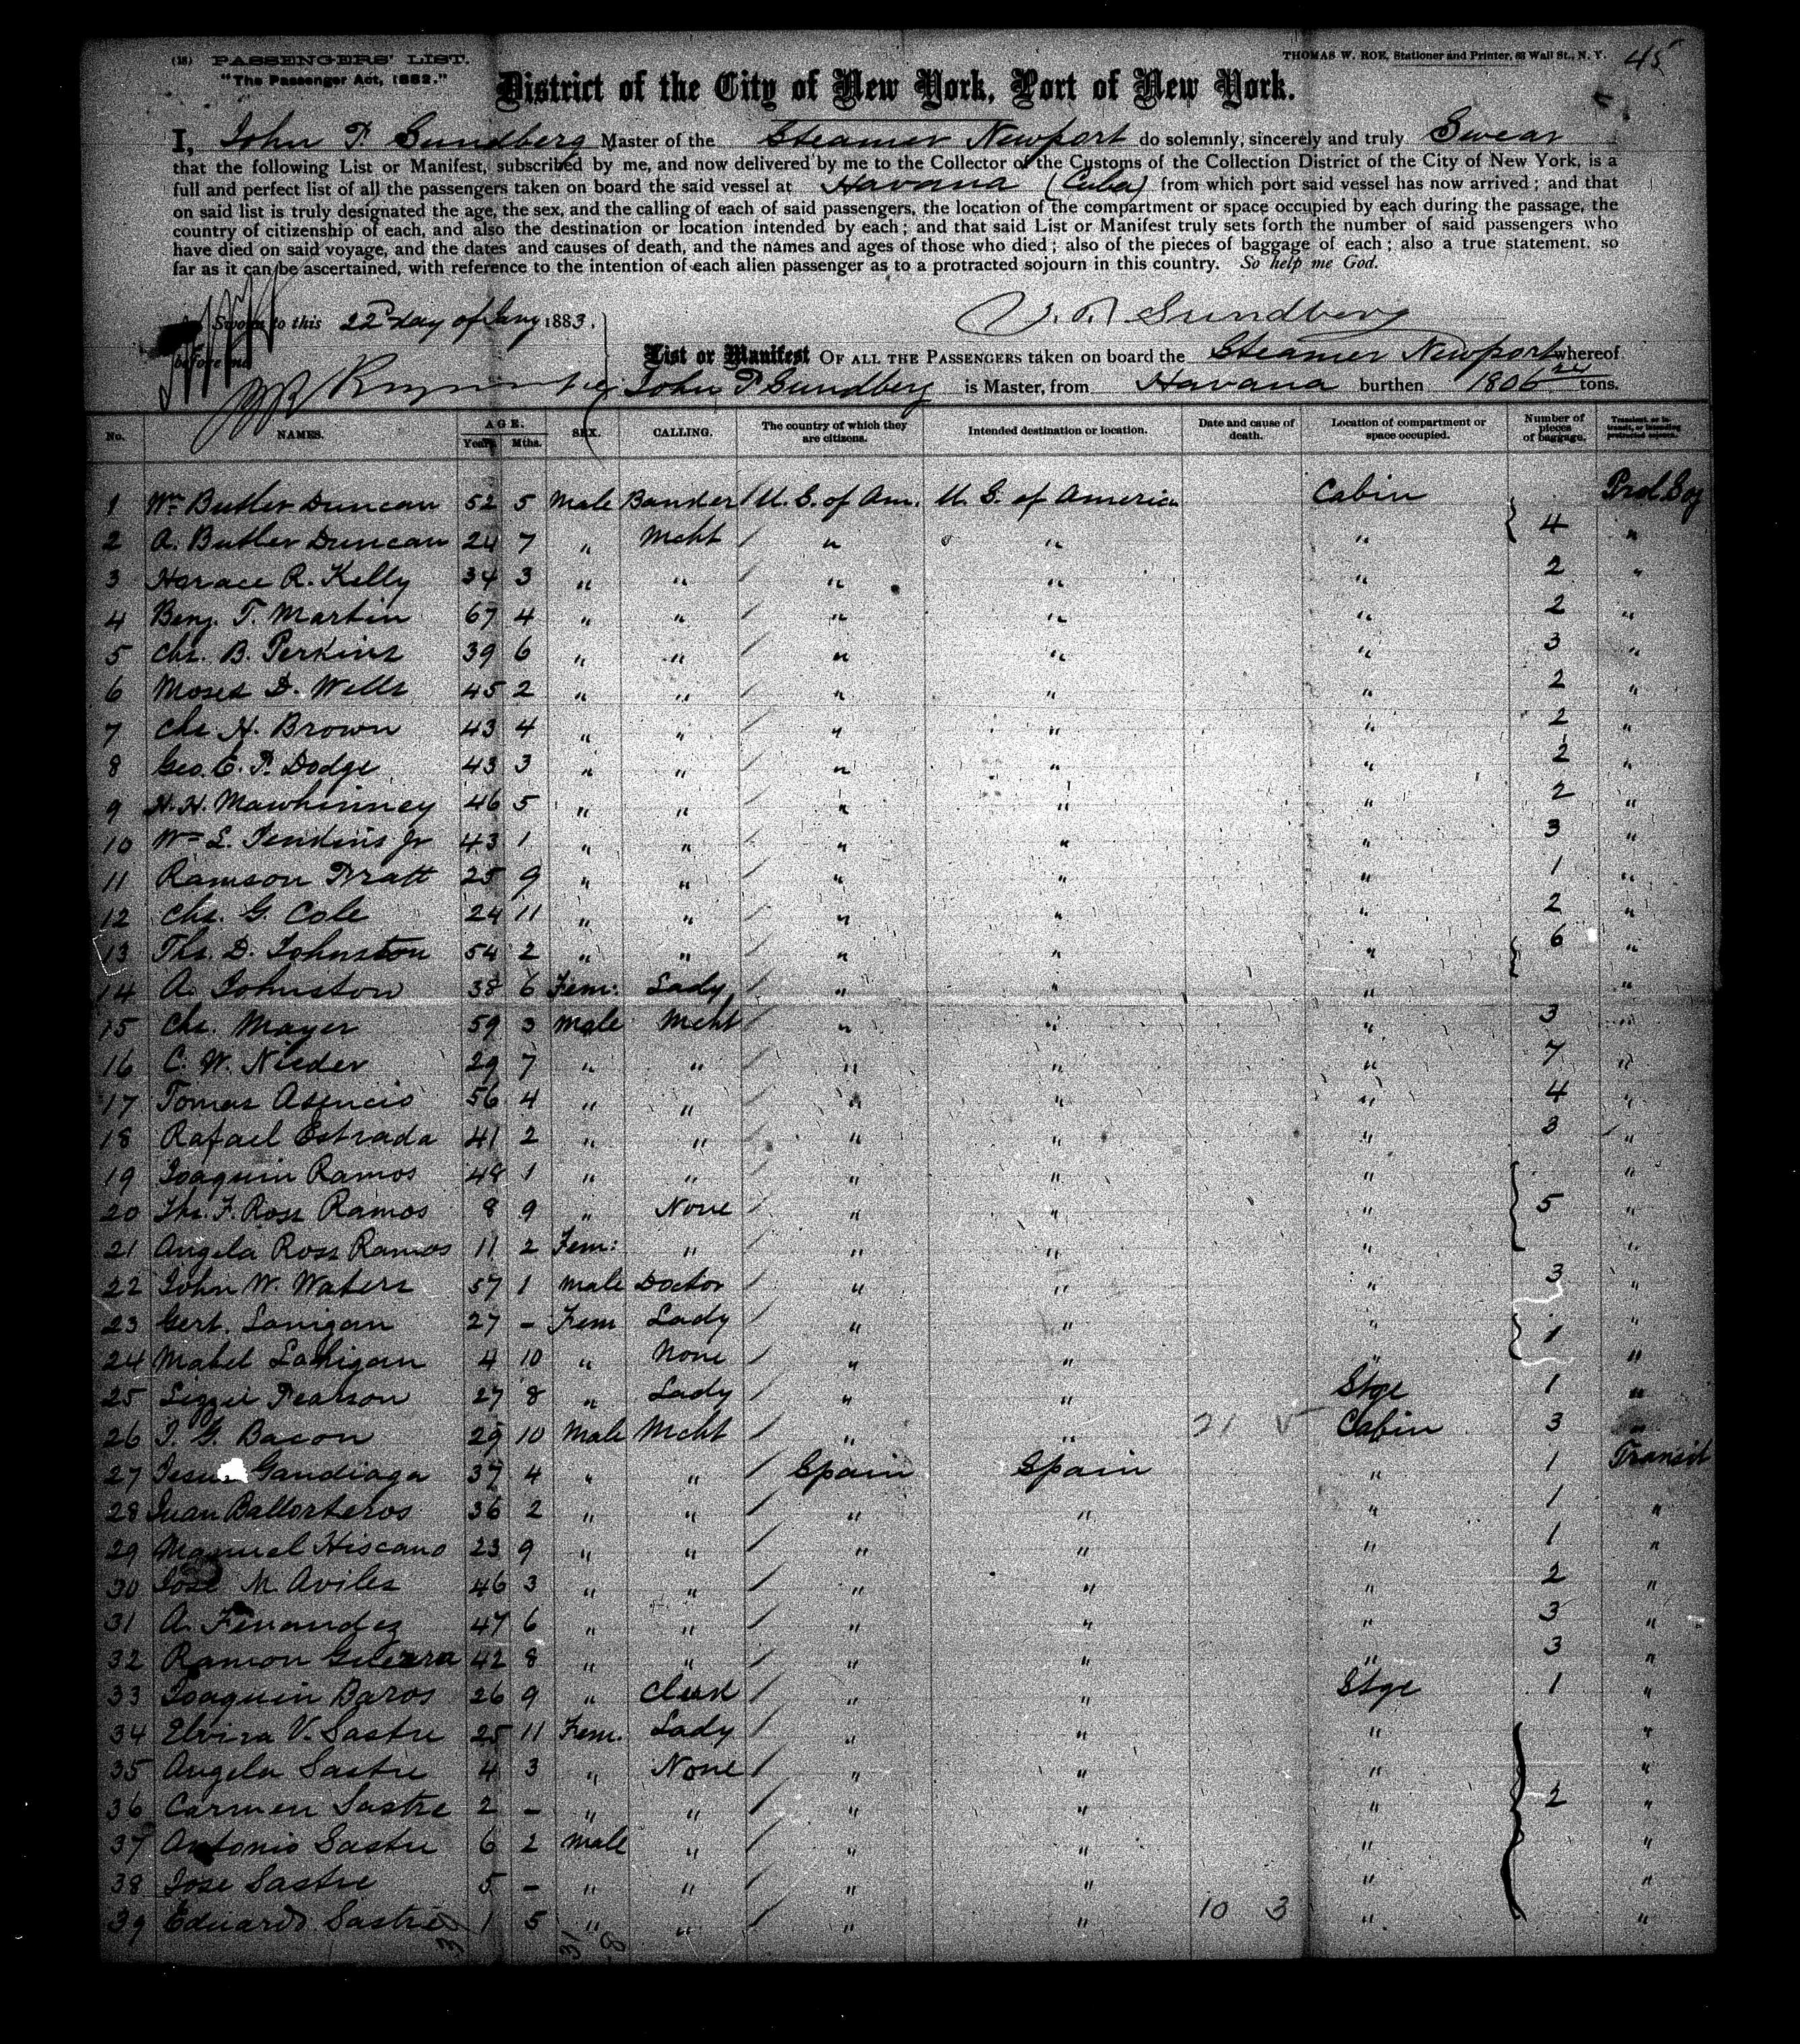 (18) PASSENGERS' LIST.
"The Passenger Act, 1882."
THOMAS W. ROE, Stationer and Printer, 63 Wall St., N. Y.
45
District of the City of New York, Port of New York.
I, John P. Sundberg Master of the Steamer Newport do solemnly, sincerely and truly Swear
that the following List or Manifest, subscribed by me, and now delivered by me to the Collector of the Customs of the Collection District of the City of New York, is a
full and perfect list of all the passengers taken on board the said vessel at Havana (Cuba) from which port said vessel has now arrived; and that
on said list is truly designated the age, the sex, and the calling of each of said passengers, the location of the compartment or space occupied by each during the passage, the
country of citizenship of each, and also the destination or location intended by each; and that said List or Manifest truly sets forth the number of said passengers who
have died on said voyage, and the dates and causes of death, and the names and ages of those who died; also of the pieces of baggage of each; also a true statement, so
far as it can be ascertained, with reference to the intention of each alien passenger as to a protracted sojourn in this country. So help me God.
Sworn to this 22d day of Jany 1883.
J. P. Sundberg
before me
List or Manifest OF ALL THE PASSENGERS taken on board the Steamer Newport whereof
John P Sundberg is Master, from Havana burthen 1806 tons.
No. NAMES. AGE. Years Mths. SEX. CALLING. The country of which they are citizens. Intended destination or location. Date and cause of death. Location of compartment or space occupied. Number of pieces of baggage. Transient, or in transit, or intending protracted sojourn.
1 Wm Butler Duncan 52 5 Male Banker U. S. of Am. U. S. of America Cabin Prol. Soj
2 A. Butler Duncan 24 7 " Mcht " " " 4 "
3 Horace R. Kelly 34 3 " " " " " 2 "
4 Benj. T. Martin 67 4 " " " " " 2 "
5 Chs. B. Perkins 39 6 " " " " " 3 "
6 Moses D. Wells 45 2 " " " " " 2 "
7 Chs H. Brown 43 4 " " " " " 2 "
8 Geo. E. P. Dodge 43 3 " " " " " 2 "
9 H. H. Mawhinney 46 5 " " " " " 2 "
10 Wm L. Jenkins Jr 43 1 " " " " " 3 "
11 Ramson Pratt 25 9 " " " " " 1 "
12 Chs. G. Cole 24 11 " " " " " 2 "
13 Ths. D. Johnston 54 2 " " " " " 6 "
14 A. Johnston 38 6 Fem: Lady " " " "
15 Chs. Mayer 59 3 Male Mcht " " " 3 "
16 C. W. Nieder 29 7 " " " " " 7 "
17 Tomas Asencio 56 4 " " " " " 4 "
18 Rafael Estrada 41 2 " " " " " 3 "
19 Joaquin Ramos 48 1 " " " " " "
20 Ths. F. Ross Ramos 8 9 " None " " " 5 "
21 Angela Ross Ramos 11 2 Fem: " " " " "
22 John W. Waters 57 1 Male Doctor " " " 3 "
23 Gert. Lanigan 27 - Fem Lady " " " "
24 Mabel Lanigan 4 10 " None " " " 1 "
25 Lizzie Pearson 27 8 " Lady " " Stge 1 "
26 J. G. Bacon 29 10 Male Mcht " " 21 Cabin 3 "
27 Jesus Gandiaga 37 4 " " Spain Spain " 1 Transit
28 Juan Ballorteros 36 2 " " " " " 1 "
29 Manuel Hiscano 23 9 " " " " " 1 "
30 Jose M. Aviles 46 3 " " " " " 2 "
31 A. Fenandez 47 6 " " " " " 3 "
32 Ramon 42 8 " " " " " 3 "
33 Joaquin Baros 26 9 " Clerk " " Stge 1 "
34 Elvira V. Sastre 25 11 Fem. Lady " " " "
35 Angela Sastre 4 3 " None " " " "
36 Carmen Sastre 2 - " " " " " 2 "
37 Antonio Sastre 6 2 Male " " " " "
38 Jose Sastre 5 - " " " " " "
39 Eduardo Sastre 1 5 " " " " 10 3 " "
3 31 8